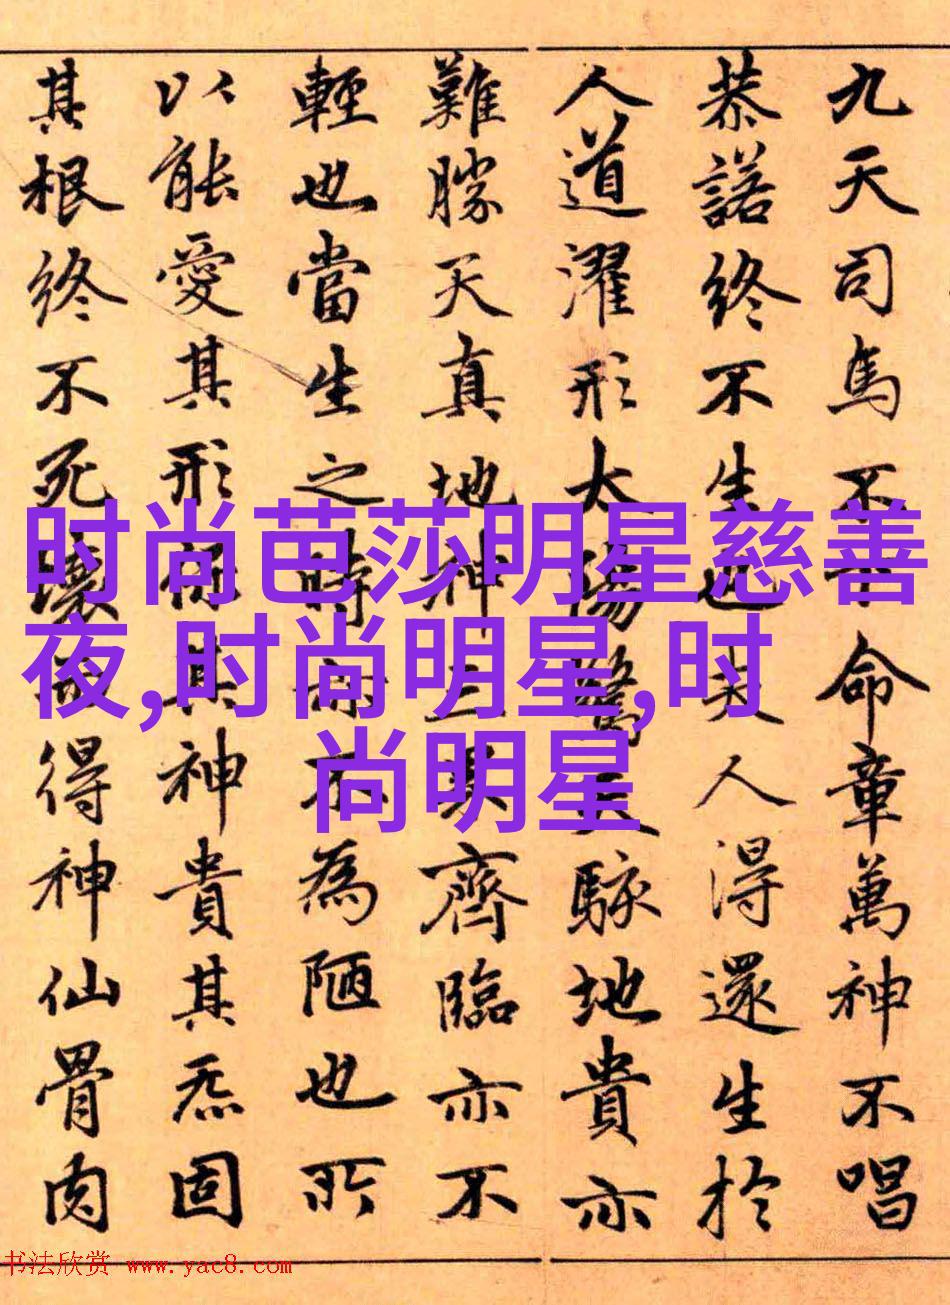 九天司馬不下命章萬神不唱
恭諾終不生也夫人得還生於
人道濯形大陽驚天駭地貴亦
難勝天真地神三界齊臨亦不
輕也當生之時亦不為陋也所
以能愛其形保其神貴其炁固
其根終不死壞而得神仙骨肉
时尚芭莎明星慈善
夜,时尚明星,时
尚明星
书法欣赏 www.yac8.com